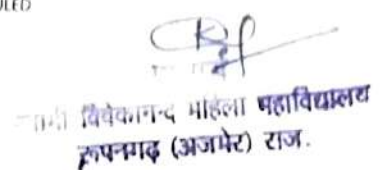 ULED
विवेकानन्द महिला महाविद्यालय
रूपनगढ़ (अजमेर) राज.